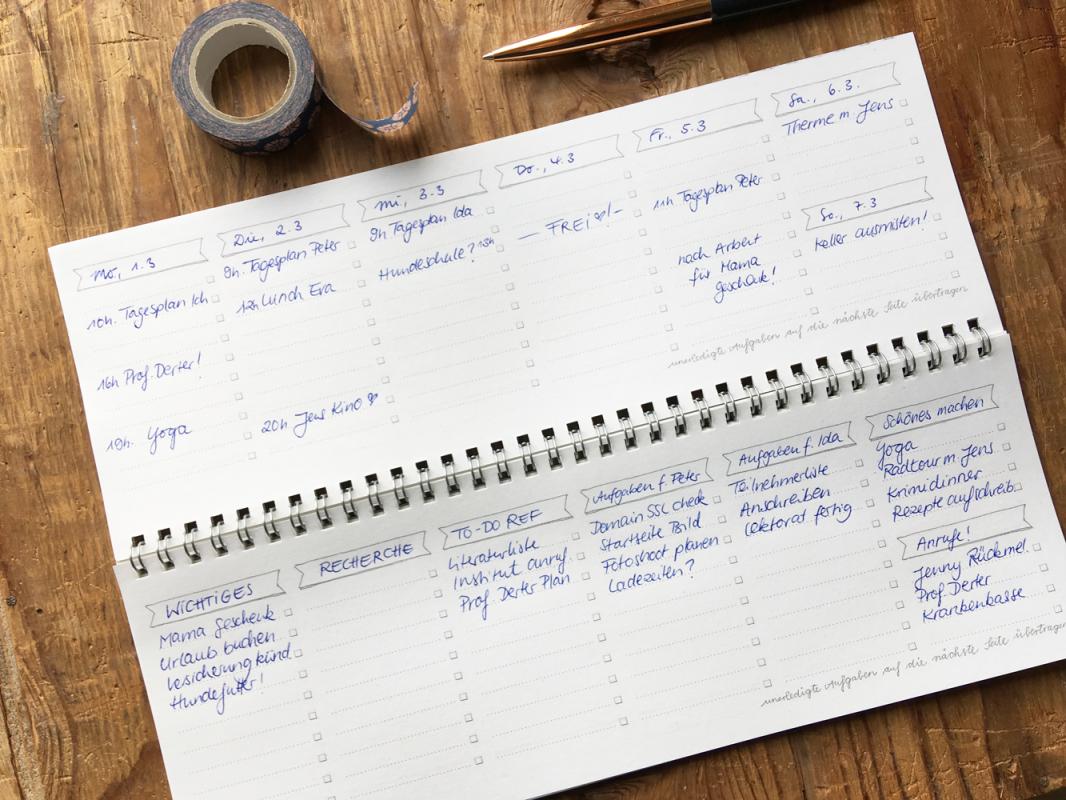 Mo, 1.3
10h. Tagesplan Ich
16h Prof. Derter!
19h. Yoga
Die, 2.3
9h. Tagesplan Peter
12h Lunch Eva
20h Jens Kino
Mi, 3.3
9h Tagesplan Ida
Hundeschule? 15h
Do., 4.3
— FREI !—
Fr., 5.3
11h Tagesplan Peter
nach Arbeit
für Mama
geschenk!
Sa., 6.3.
Therme m. Jens
So., 7.3
Keller ausmisten!
unerledigte Aufgaben auf die nächste Seite übertragen
WICHTIGES
Mama Geschenk
Urlaub buchen
Versicherung künd.
Hundefutter!
RECHERCHE
TO-DO REF
Literaturliste
Institut anruf.
Prof. Derter Plan
Aufgaben f. Peter
Domain SSL check
Startseite Bild
Fotoshoot planen
Ladezeiten?
Aufgaben f. Ida
Teilnehmerliste
Anschreiben
Lektorat fertig
Schönes machen
Yoga
Radtour m. Jens
Krimidinner
Rezepte aufschreib.
Anrufe!
Jenny Rückmel.
Prof. Derter
Krankenkasse
unerledigte Aufgaben auf die nächste Seite übertragen